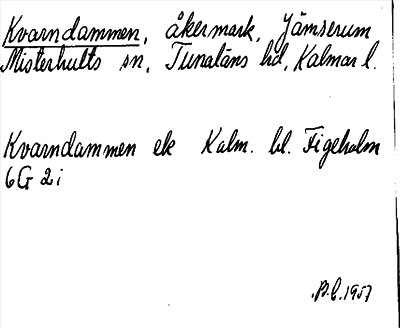 Kvarndammen, åkermark, Jämserum
Misterhults sn, Tunaläns hd, Kalmar l.
Kvarndammen ek Kalm. bl. Figeholm
6G 2i
1957